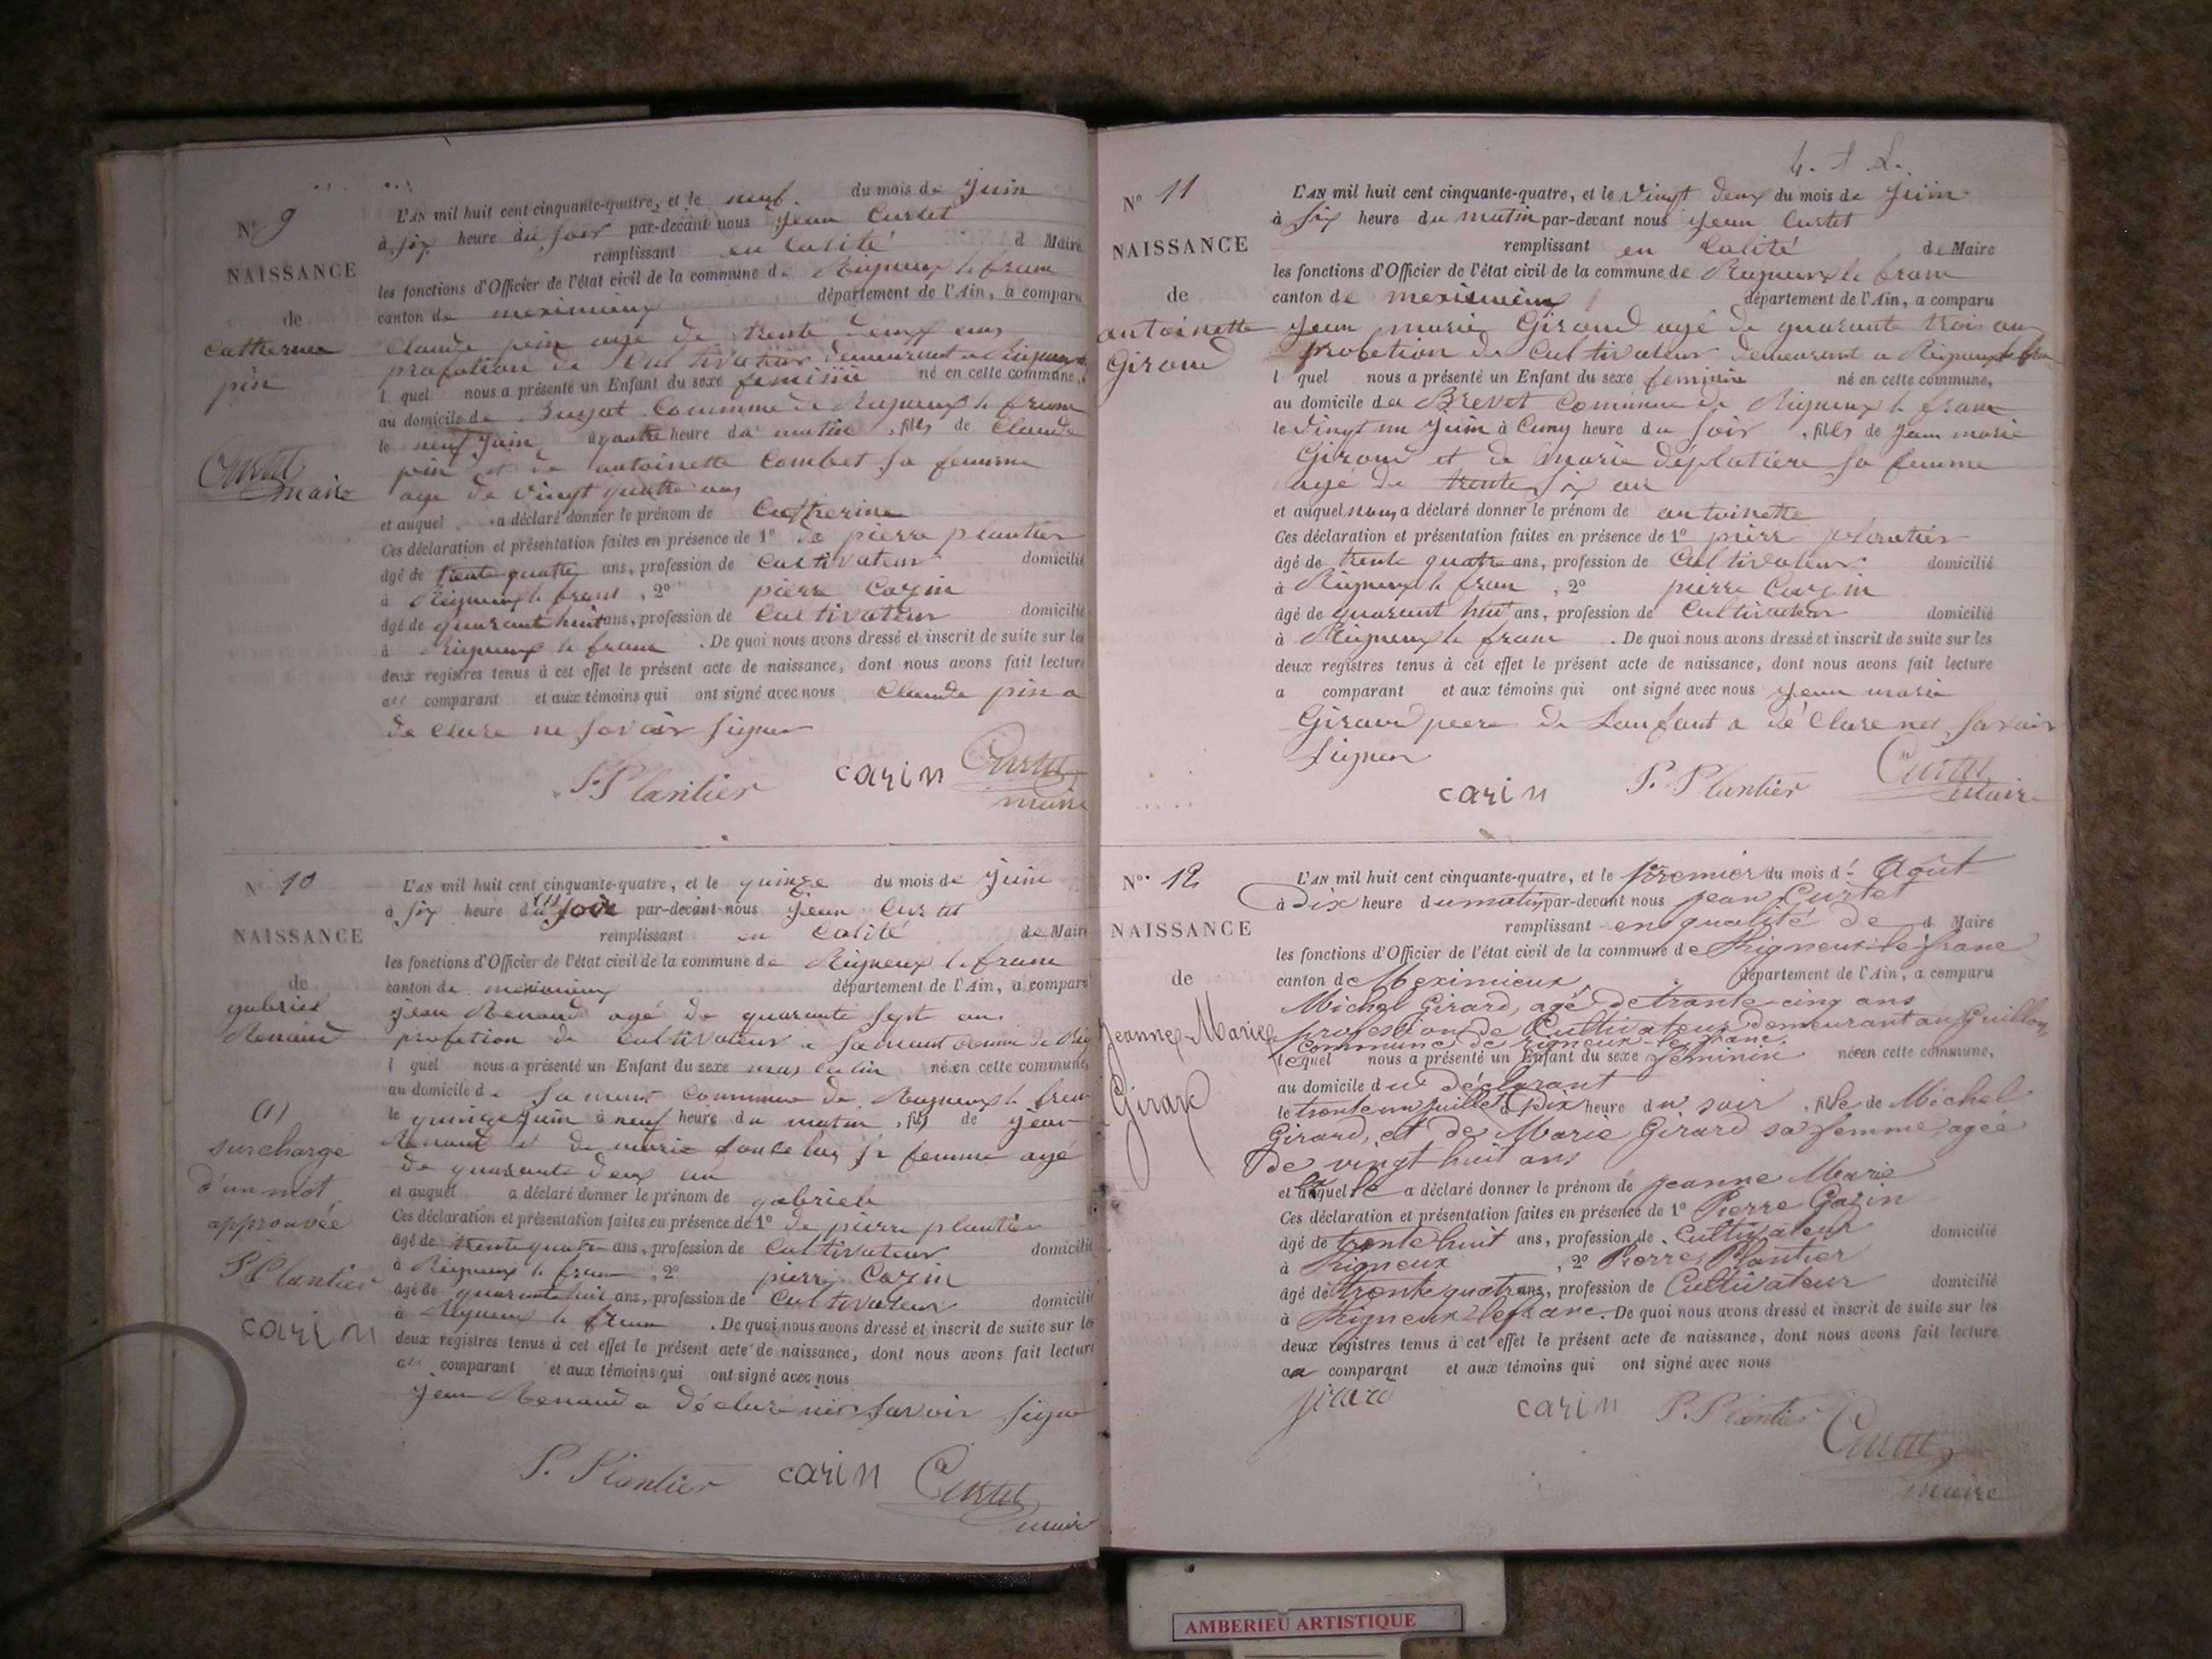 N° 9
NAISSANCE
de
catherine
pin
Curtet
maire
L'AN mil huit cent cinquante-quatre, et le neuf du mois de Juin
à six heure du soir par-devant nous jean Curtet
remplissant en Calité d Maire
les fonctions d'Officier de l'état civil de la commune de Rigneux le franc
canton de meximieux département de l'Ain, a comparu
Claude pin agé de trente deux ans
profetion de Cultivateur demeurant a Rigneux
l quel nous a présenté un Enfant du sexe feminin né en cette commune,
au domicile de Commune de Rigneux le franc
le neuf Juin à quatre heure du matin , fils de Claude
pin et de antoinette Combet sa femme
age de vingt quatre ans
et auquel a déclaré donner le prénom de Catherine
Ces déclaration et présentation faites en présence de 1° de pierre plantier
âgé de trente quatre ans, profession de Cultivateur domicilié
à Rigneux le franc , 2° pierre Carin
âgé de quarant huit ans, profession de Cultivateur domicilié
à Rigneux le franc . De quoi nous avons dressé et inscrit de suite sur les
deux registres tenus à cet effet le présent acte de naissance, dont nous avons fait lecture
au comparant et aux témoins qui ont signé avec nous Claude pin a
de Clare ne savoir signer
P. Plantier carin Curtet
maire
N° 10
NAISSANCE
de
gabriel
Renaud
(1)
surcharge
d'un mot
approuvée
P. Plantier
carin
L'AN mil huit cent cinquante-quatre, et le quinze du mois de Juin
à six heure du (1) soir par-devant nous jean Curtet
remplissant en Calité de Maire
les fonctions d'Officier de l'état civil de la commune de Rigneux le franc
canton de meximieux département de l'Ain, a comparu
jean Renaud agé de quarante sept an
profetion de Cultivateur a
l quel nous a présenté un Enfant du sexe mas culin né en cette commune,
au domicile de Commune de Rigneux le franc
le quinze juin à neuf heure du matin , fils de jean
Renaud et de marie sa femme agé
de quarante deux an
et auquel a déclaré donner le prénom de gabriel
Ces déclaration et présentation faites en présence de 1° de pierre plantier
âgé de trente quatre ans, profession de Cultivateur domicilié
à Rigneux le franc , 2° pierre Carin
âgé de quarante huit ans, profession de Cultivateur domicilié
à Rigneux le franc . De quoi nous avons dressé et inscrit de suite sur les
deux registres tenus à cet effet le présent acte de naissance, dont nous avons fait lecture
au comparant et aux témoins qui ont signé avec nous
jean Renaud a déclaré ne savoir signe
P. Plantier carin Curtet
maire
N° 11
NAISSANCE
de
antoinette
Giroud
L'AN mil huit cent cinquante-quatre, et le vingt deux du mois de Juin
à six heure du matin par-devant nous jean Curtet
remplissant en Calité de Maire
les fonctions d'Officier de l'état civil de la commune de Rigneux le franc
canton de meximieux département de l'Ain, a comparu
jean marie Giroud agé de quarante trois an
profetion de Cultivateur demeurant a Rigneux le fran
l quel nous a présenté un Enfant du sexe feminin né en cette commune,
au domicile de Brevet Commune de Rigneux le franc
le vingt un Juin à Cinq heure du soir , fils de jean marie
Giroud et de marie déplatiere sa femme
agé de trente six an
et auquel nous a déclaré donner le prénom de antoinette
Ces déclaration et présentation faites en présence de 1° pierre plantier
âgé de trente quatre ans, profession de Cultivateur domicilié
à Rigneux le fran , 2° pierre Carin
âgé de quarant huit ans, profession de Cultivateur domicilié
à Rigneux le franc . De quoi nous avons dressé et inscrit de suite sur les
deux registres tenus à cet effet le présent acte de naissance, dont nous avons fait lecture
a comparant et aux témoins qui ont signé avec nous jean marie
Giroud peere de Lanfant a dé Clare ne savoir
signer
carin P. Plantier Curtet
maire
N° 12
NAISSANCE
de
Jeanne Marie
Girard
L'AN mil huit cent cinquante-quatre, et le premier du mois d' Août
à Dix heure du matin, par-devant nous jean Curtet
remplissant en qualité de d Maire
les fonctions d'Officier de l'état civil de la commune de Rigneux-le-franc
canton de Meximieux, département de l'Ain, a comparu
Michel Girard, agé de trente-cinq ans
profession de Cultivateur demeurant au Guillon,
Commune de rigneux-le-franc.
lequel nous a présenté un Enfant du sexe féminin née en cette commune,
au domicile du déclarant
le trente un juillet à Dix heure du soir , fille de Michel
Girard, et de Marie Girard sa femme, agée
de vingt-huit ans
et laquelle a déclaré donner le prénom de jeanne Marie
Ces déclaration et présentation faites en présence de 1° Pierre Carin
âgé de trente huit ans, profession de Cultivateur domicilié
à Rigneux , 2° Pierre Plantier
âgé de trente quatre ans, profession de Cultivateur domicilié
à Rigneux-le-franc. De quoi nous avons dressé et inscrit de suite sur les
deux registres tenus à cet effet le présent acte de naissance, dont nous avons fait lecture
au comparant et aux témoins qui ont signé avec nous
girard carin P. Plantier Curtet
maire
AMBERIEU ARTISTIQUE